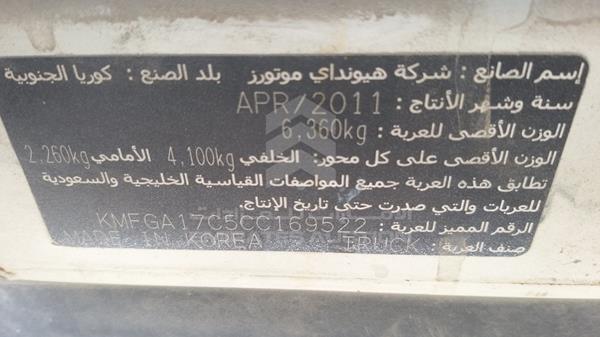 إسم الصانع : شركة هيونداي موتورز بلد الصنع : كوريا الجنوبية
سنة وشهر الأنتاج : APR/2011
الوزن الأقصى للعربة : 6,360kg
الوزن الأقصى على كل محور: الخلفي 4,100kg الأمامي 2,260kg
تطابق هذه العربة جميع المواصفات القياسية الخليجية والسعودية
للعربات والتي صدرت حتى تاريخ الإنتاج.
الرقم المميز للعربة : KMFGA17C5CC169522
صنف العربة : TRUCK MADE IN KOREA